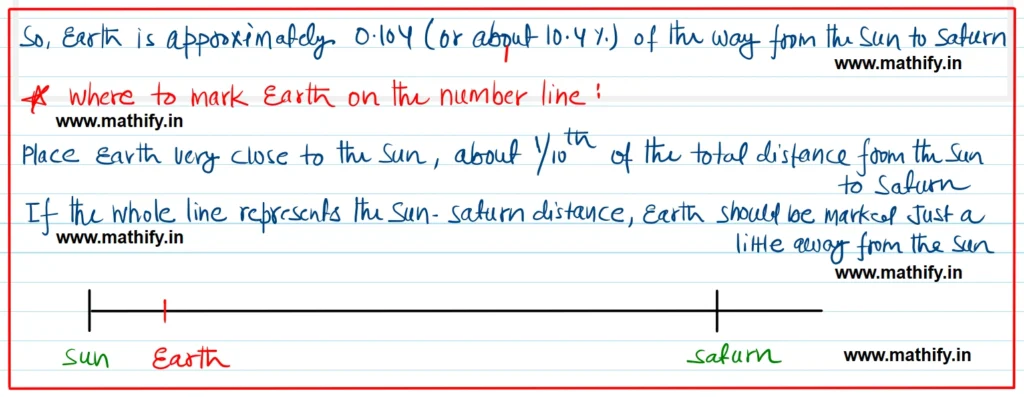 So, Earth is approximately 0.104 (or about 10.4%) of the way from the Sun to Saturn
www.mathify.in
* where to mark Earth on the number line:
www.mathify.in
Place Earth very close to the Sun, about 1/10th of the total distance from the Sun
to Saturn
If the whole line represents the Sun-Saturn distance, Earth should be marked Just a
www.mathify.in
little away from the Sun
www.mathify.in
Sun Earth Saturn www.mathify.in